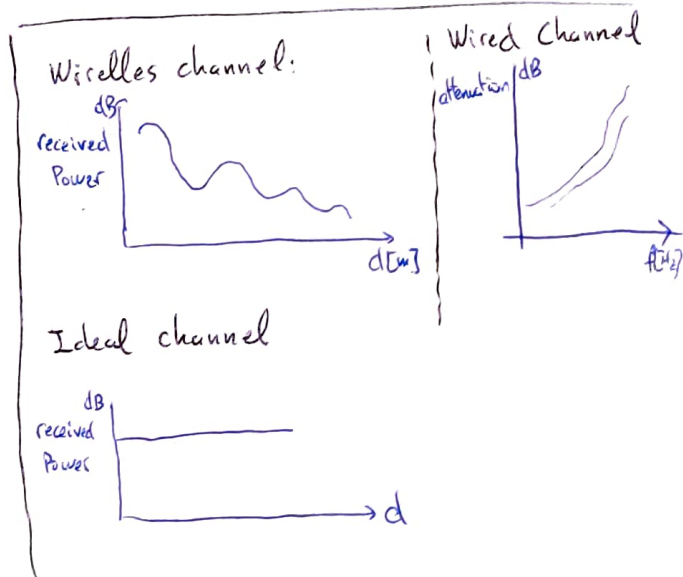 Wirelles channel:
dB
received
Power
d[m]
Wired Channel
attenuation
dB
f[Hz]
Ideal channel
dB
received
Power
d